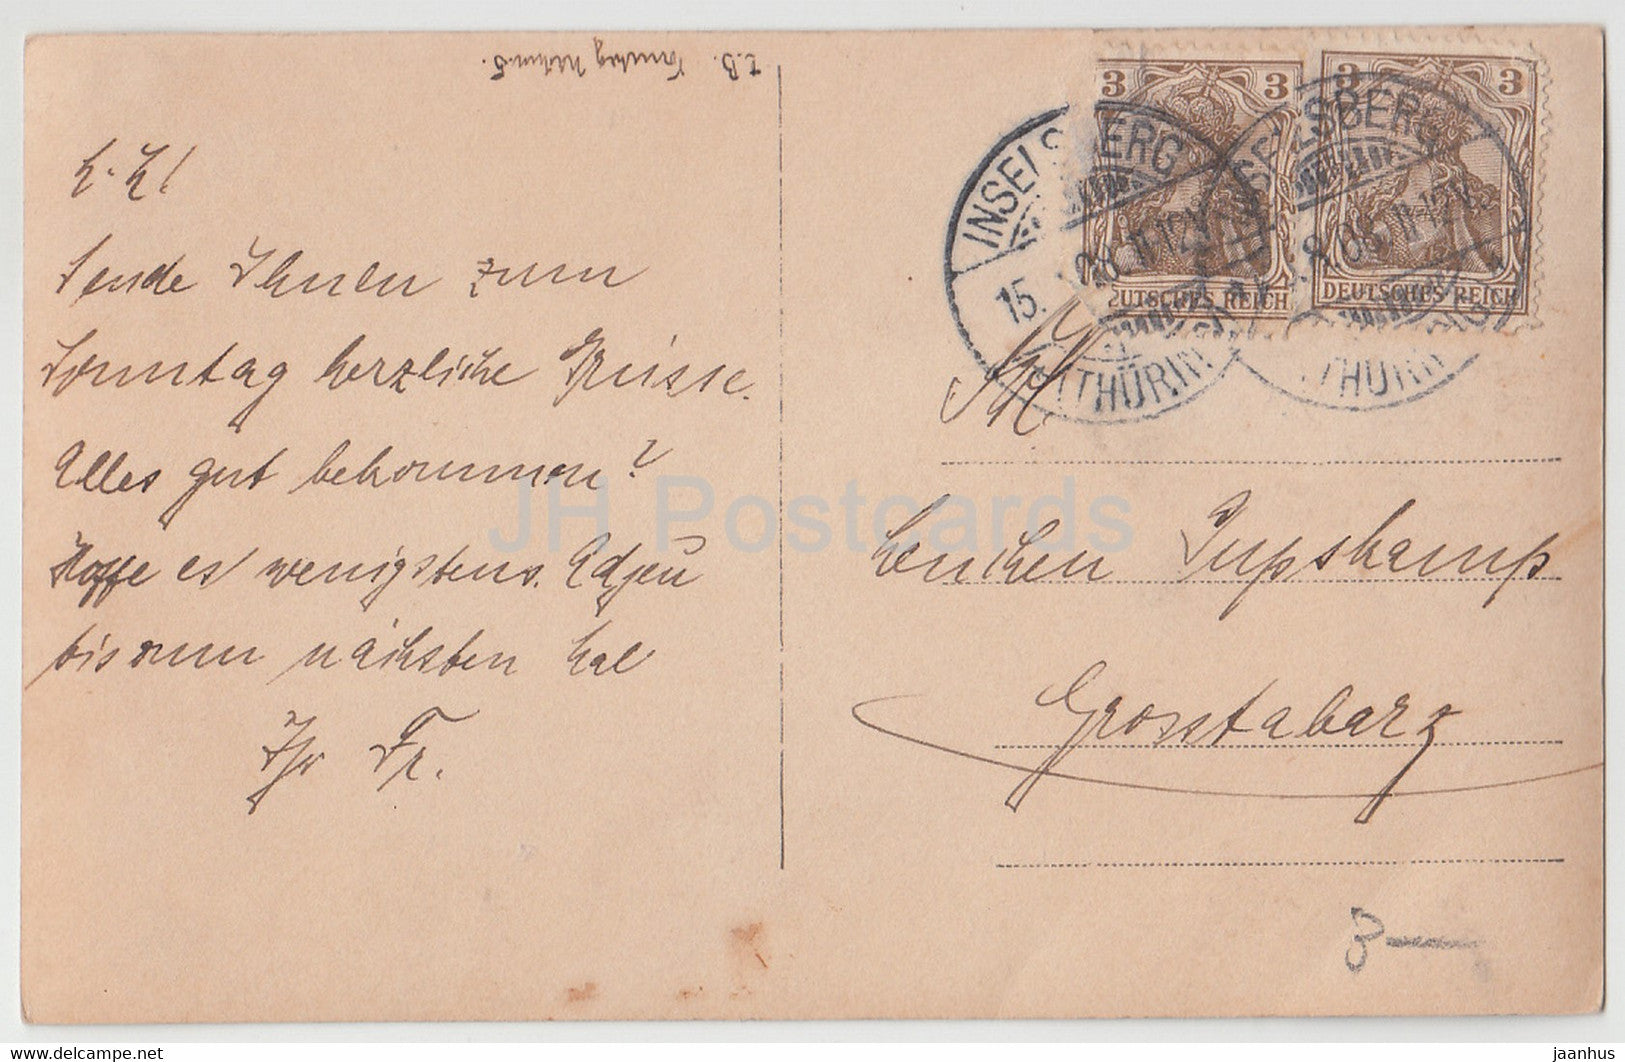 L. L!
Sende Ihnen zum
Sonntag herzliche Grüsse.
Alles gut bekommen?
Hoffe es wenigstens. Adjeu
bis zum nächsten Mal
Ihr Fr.
3 3
DEUTSCHES REICH
3 3
DEUTSCHES REICH
INSELSBERG
15. 8.08.11-12V.
(THÜRIN
INSELSBERG
8.08.11-12V.
(THÜRIN
Lenchen Pupskamp
Grosstabarz
3
JH Postcards
delcampe.net
jaanhus